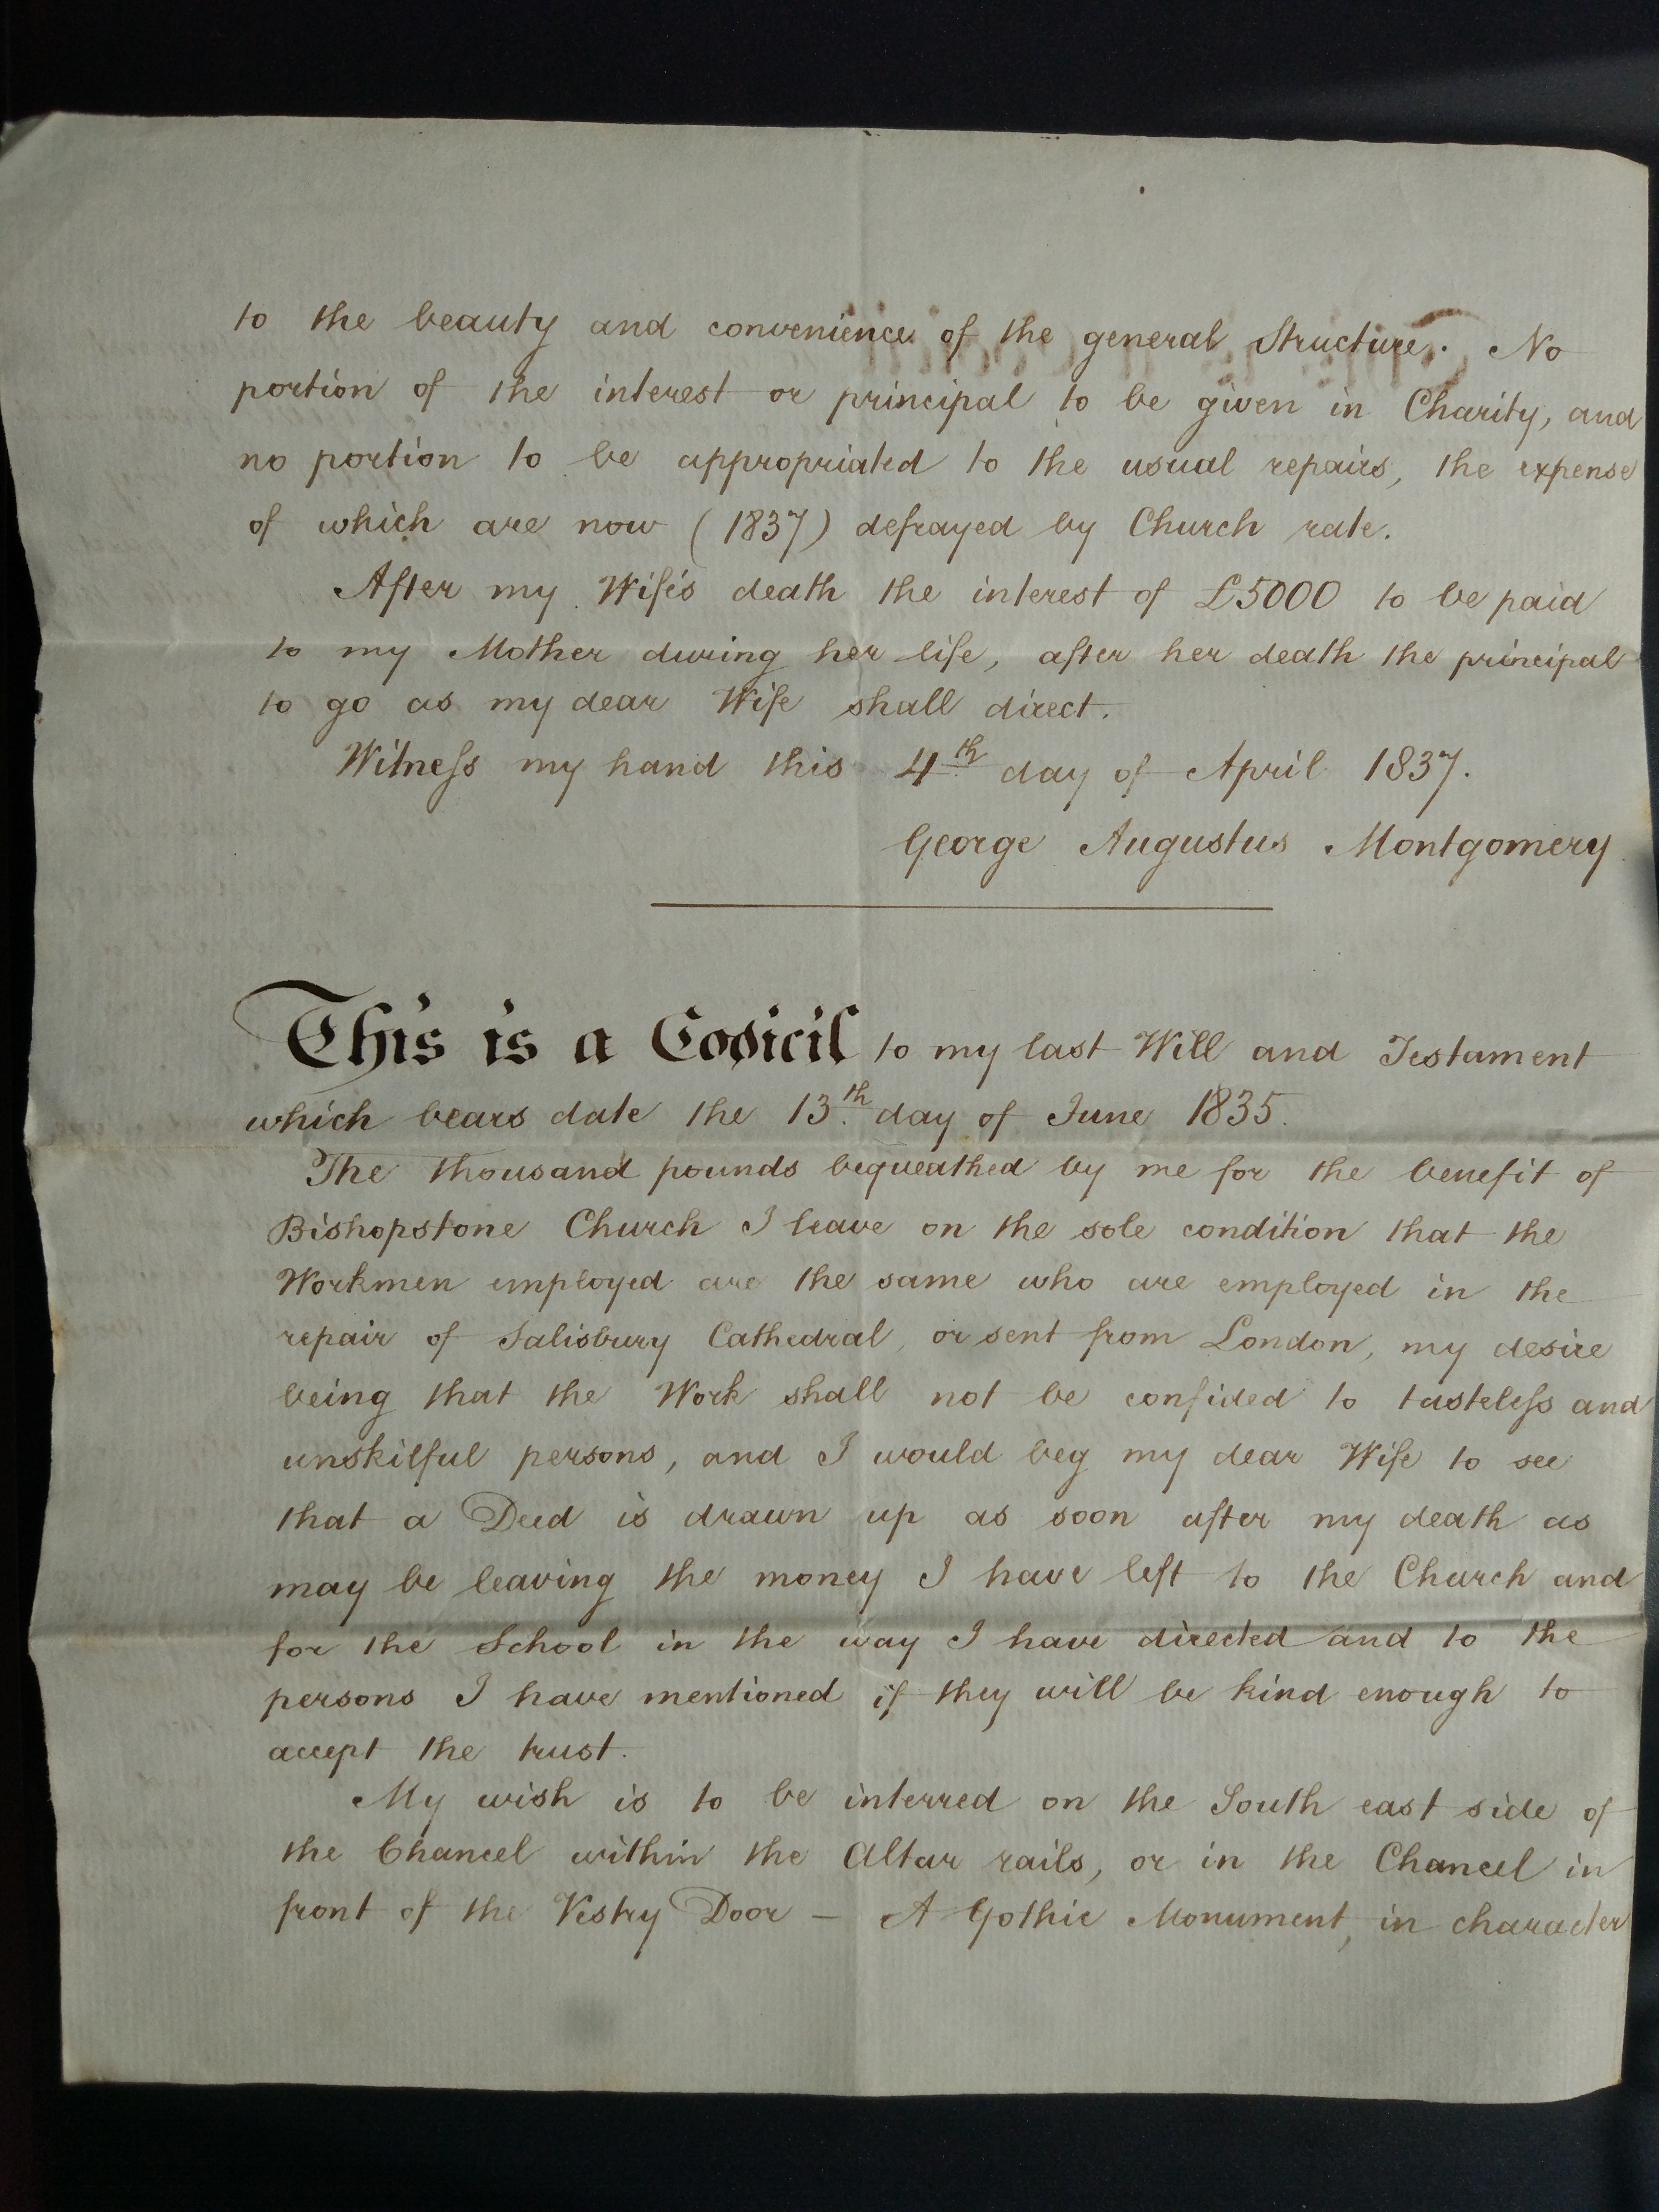 to the beauty and convenience of the general Structure. No
portion of the interest or principal to be given in Charity, and
no portion to be appropriated to the usual repairs, the expense
of which are now (1837) defrayed by Church rate.
After my Wife's death the interest of £5000 to be paid
to my Mother during her life, after her death the principal
to go as my dear Wife shall direct.
Witneſs my hand this 4th day of April 1837.
George Augustus Montgomery
This is a Codicil to my last Will and Testament
which bears date the 13th day of June 1835.
The thousand pounds bequeathed by me for the benefit of
Bishopstone Church I leave on the sole condition that the
Workmen employed are the same who are employed in the
repair of Salisbury Cathedral, or sent from London, my desire
being that the Work shall not be confided to tasteleſs and
unskilful persons, and I would beg my dear Wife to see
that a Deed is drawn up as soon after my death as
may be leaving the money I have left to the Church and
for the School in the way I have directed and to the
persons I have mentioned if they will be kind enough to
accept the trust.
My wish is to be interred on the South east side of
the Chancel within the Altar rails, or in the Chancel in
front of the Vestry Door — A Gothic Monument, in character